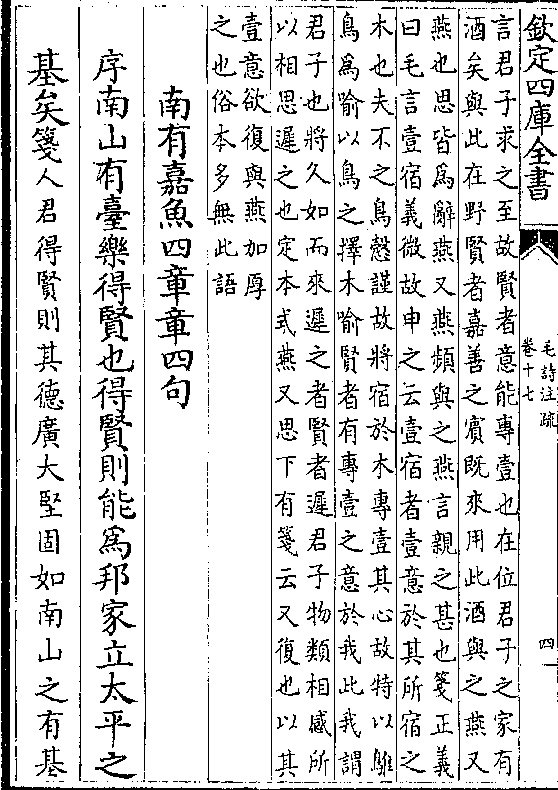 欽定四庫全書
毛詩注疏
卷十七
四
言君子求之至故賢者意能專壹也在位君子之家有
酒矣與此在野賢者嘉善之賓既來用此酒與之燕又
燕也思皆為辭燕又燕頻與之燕言親之甚也箋正義
曰毛言壹宿義微故申之云壹宿者壹意於其所宿之
木也夫不之鳥慤謹故將宿於木專壹其心故特以鵻
鳥為喻以鳥之擇木喻賢者有專壹之意於我此我謂
君子也將久如而來遲之者賢者遲君子物類相感所
以相思遲之也定本式燕又思下有箋云又復也以其
壹意欲復與燕加厚
之也俗本多無此語
南有嘉魚四章章四句
序南山有臺樂得賢也得賢則能為邦家立太平之
基矣箋人君得賢則其德廣大堅固如南山之有基